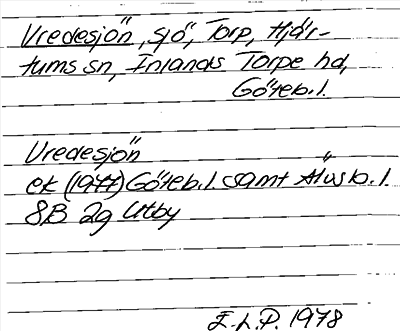 Vredesjön, sjö, Torp, Hjär-
tums sn, Inlands Torpe hd,
Göteb.l.
Vredesjön
ek (1977) Göteb.l. samt Älvsb.l.
8B 2g Utby
E.L.P. 1978